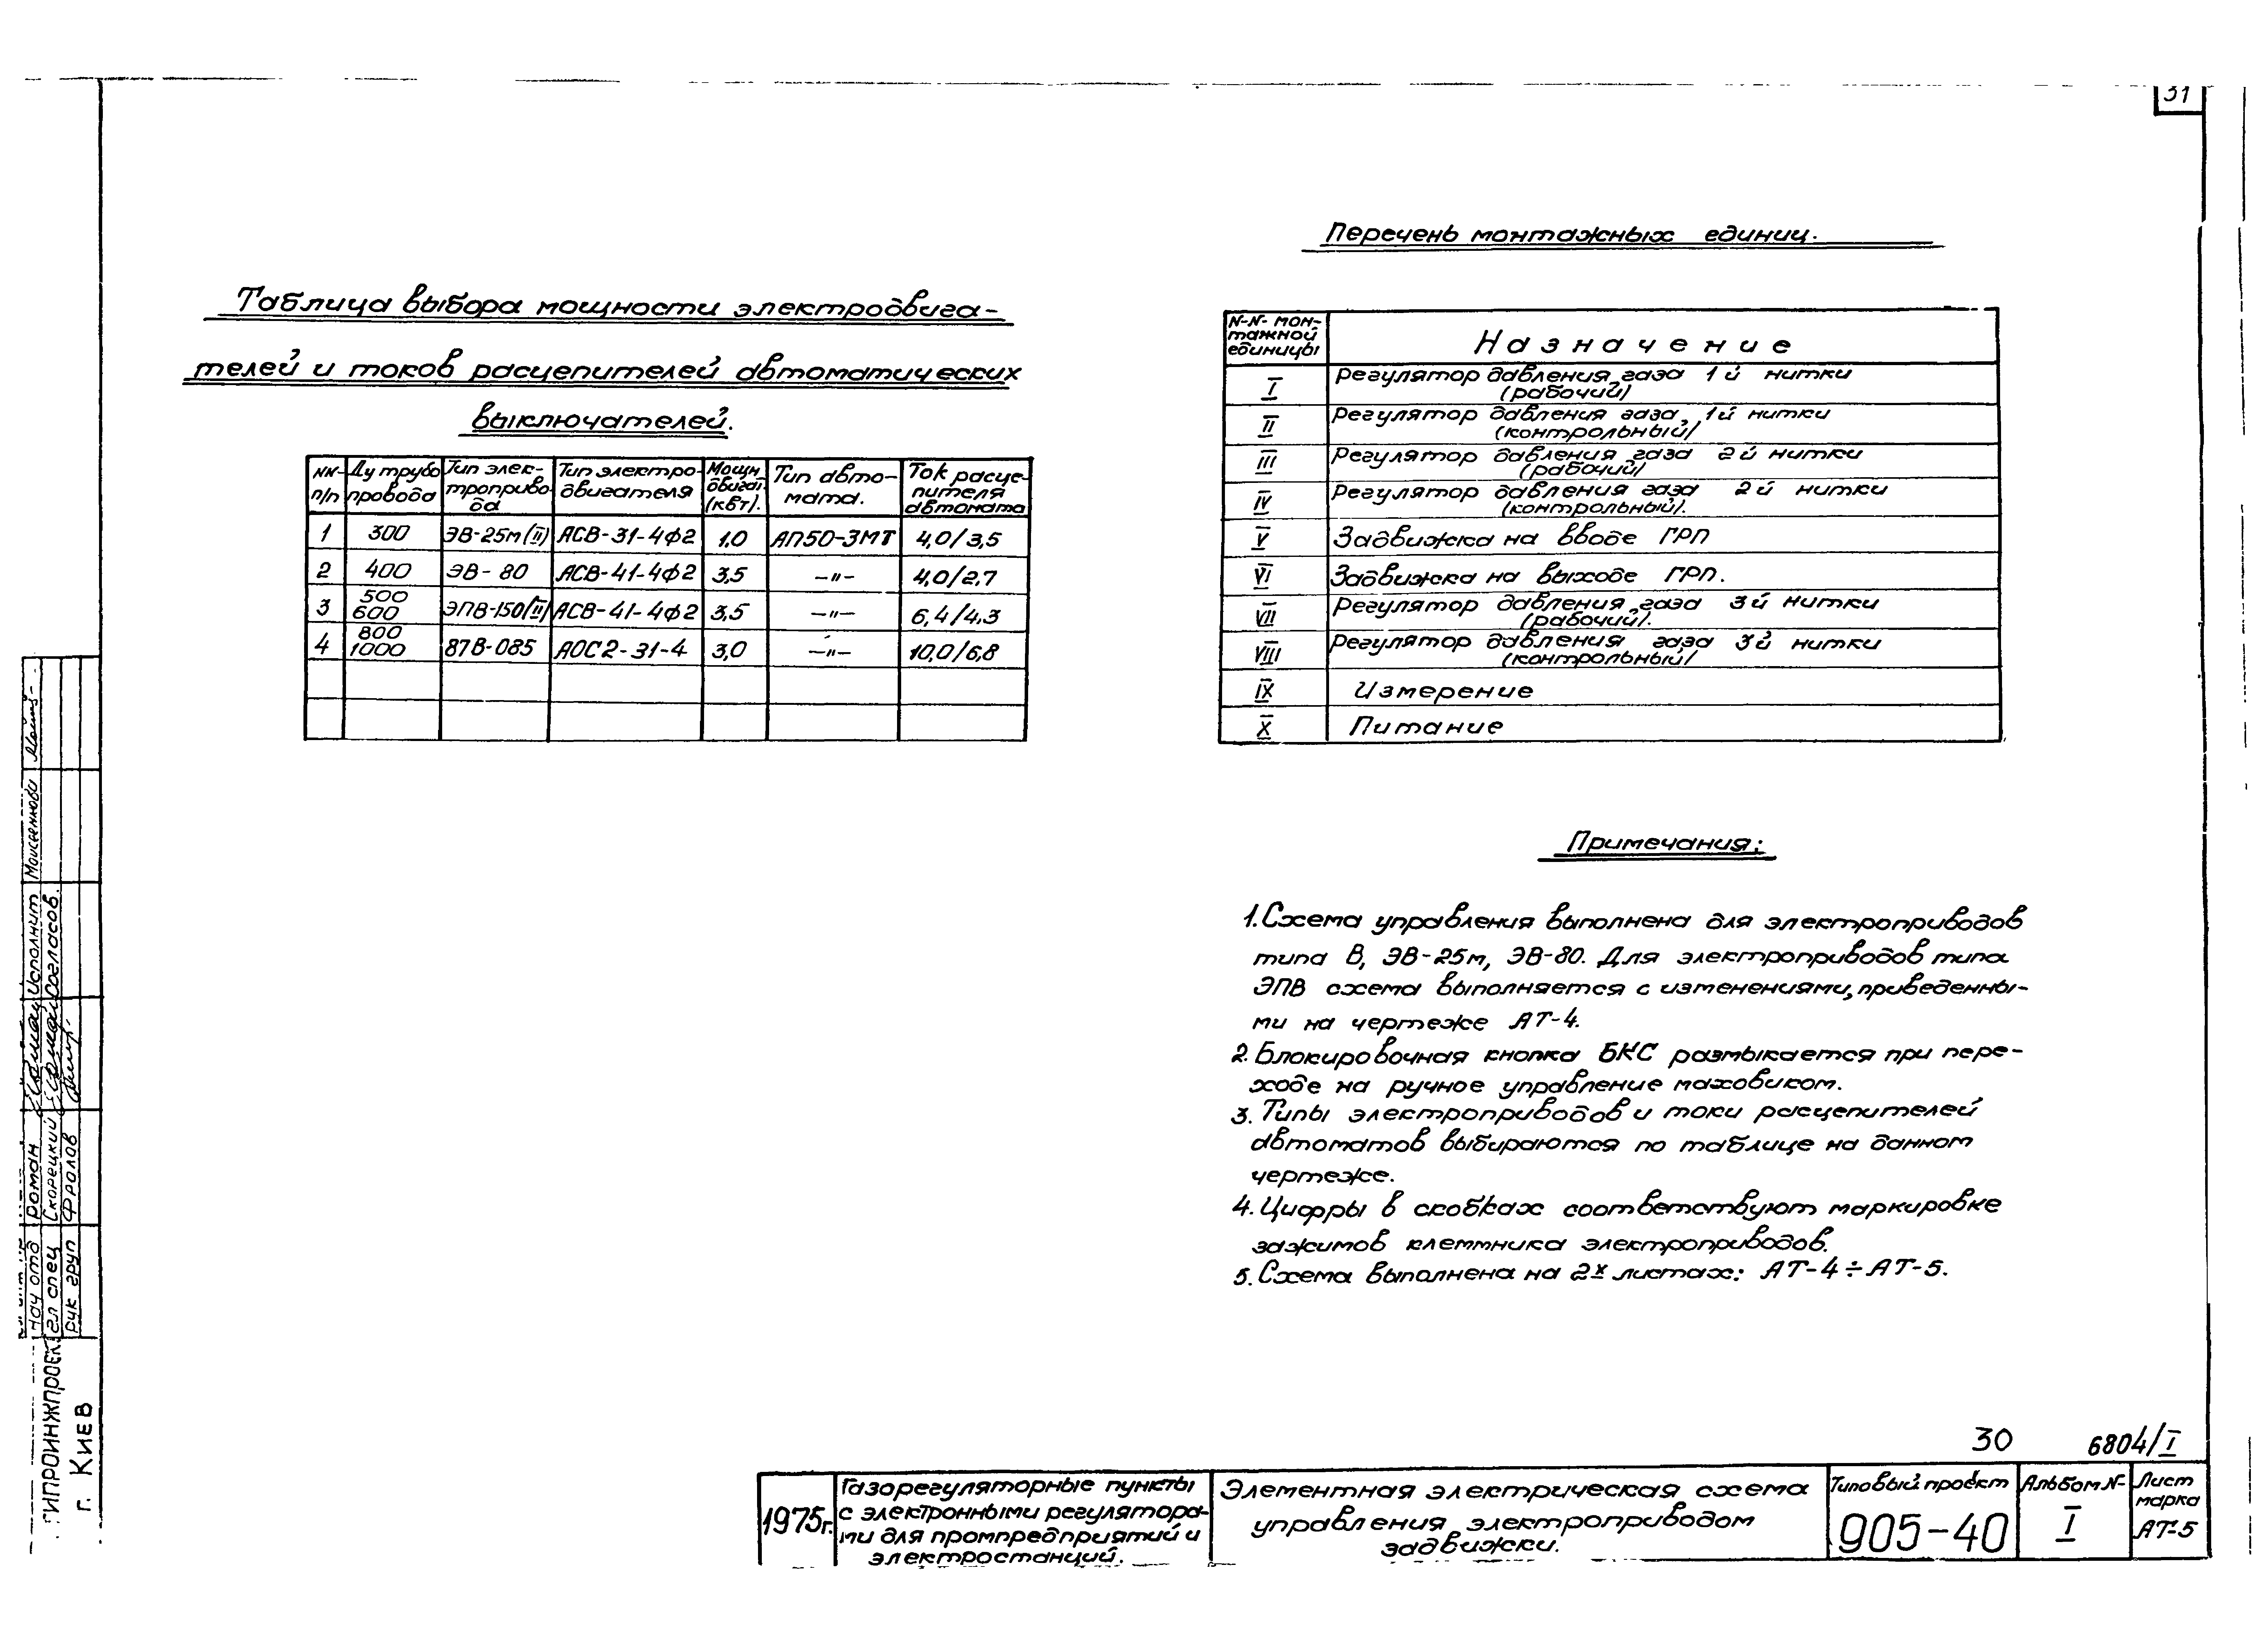 31
Таблица выбора мощности электродвига-
телей и токов расцепителей автоматических
выключателей.
NN- п/п Ду трубо провода Тип элек- троприво да Тип электро- двигателя Мощн двигат. (квт). Тип авто- мата. Ток расце- пителя автомата
1 300 ЭВ-25м(II) АСВ-31-4ф2 1.0 АП50-3МТ 4,0/3,5
2 400 ЭВ-80 АСВ-41-4ф2 3,5 -"- 4,0/2,7
3 500 600 ЭПВ-150(II) АСВ-41-4ф2 3,5 -"- 6,4/4,3
4 800 1000 87В-085 АОС2-31-4 3,0 -"- 10,0/6,8
Перечень монтажных единиц.
N-N- мон- тажной единицы Назначение
I Регулятор давления газа 1й нитки
(рабочий)
II Регулятор давления газа 1й нитки
(контрольный)
III Регулятор давления газа 2й нитки
(рабочий)
IV Регулятор давления газа 2й нитки
(контрольный).
V Задвижка на вводе ГРП
VI Задвижка на выходе ГРП.
VII Регулятор давления газа 3й нитки
(рабочий).
VIII Регулятор давления газа 3й нитки
(контрольный)
IX Измерение
X Питание
Примечания:
1. Схема управления выполнена для электроприводов
типа В, ЭВ-25м, ЭВ-80. Для электроприводов типа
ЭПВ схема выполняется с изменениями, приведенны-
ми на чертеже АТ-4.
2. Блокировочная кнопка БКС размыкается при пере-
ходе на ручное управление маховиком.
3. Типы электроприводов и токи расцепителей
автоматов выбираются по таблице на данном
чертеже.
4. Цифры в скобках соответствуют маркировке
зажимов клеммника электроприводов.
5. Схема выполнена на 2х листах: АТ-4÷АТ-5.
30 6804/I
1975г.
Газорегуляторные пункты
с электронными регулятора-
ми для промпредприятий и
электростанций.
Элементная электрическая схема
управления электроприводом
задвижки.
Типовый проект
905-40
Альбом N-
I
Лист
марка
АТ-5
ГИПРОИНЖПРОЕКТ
г. Киев
Нач отд Роман Исполнит
Гл спец Скорецкий согласов.
Рук груп Фролов